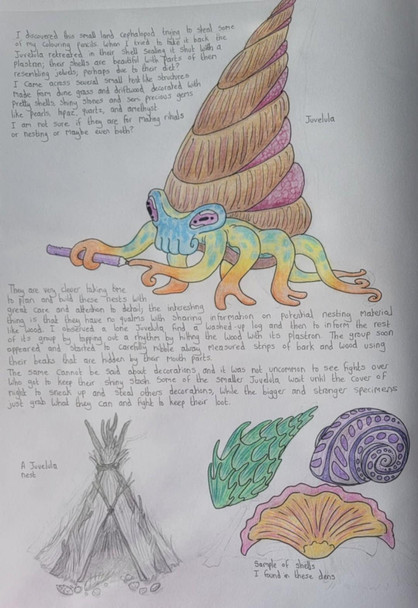 I discovered this small land cephalopod trying to steal some
of my colouring pencils. When I tried to take it back the
Juvelula retreated in their shell sealing it shut with a
plastron; their shells are beautiful with parts of them
resembling jewels, perhaps due to their diet?
I came across several small tent like structures
made from dune grass and driftwood decorated with
Pretty shells, shiny stones and semi precious gems
like pearls, topaz, quartz, and amethyst.
I am not sure if they are for mating rituals
or nesting or maybe even both?
Juvelula
They are very clever taking time
to plan and build these nests with
great care and attention to detail, the interesting
thing is that they have no qualms with sharing information on potential nesting material
like wood. I observed a lone Juvelula find a washed-up log and then to inform the rest
of its group by tapping out a rhythm by hitting the wood with its plastron. The group soon
appeared and started to carefully nibble away measured strips of bark and wood using
their beaks that are hidden by their mouth parts.
The same cannot be said about decorations, and it was not uncommon to see fights over
who got to keep their shiny stash. Some of the smaller Juvelula wait until the cover of
night to sneak up and steal others decorations, while the bigger and stronger specimens
just grab what they can and fight to keep their loot.
A Juvelula
nest
Sample of shells
I found in these dens